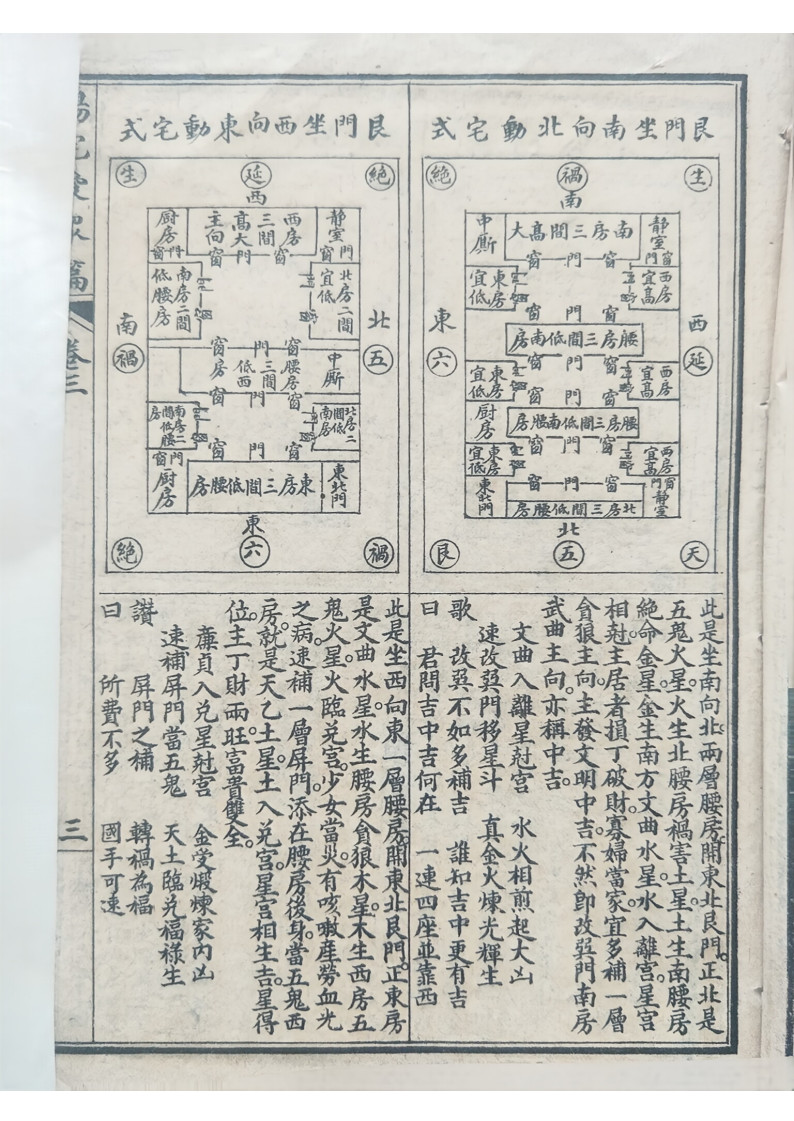 艮門坐南向北動宅式
生
禍
絕
南
靜室
門窗
南房三間高大
中厮
窗 門 窗
西房宜高
東房宜低
窗 門 窗
腰房三間低南房
窗 門 窗
西房宜高
東房宜低
窗 門 窗
厨房
腰房三間低南腰房
窗 門 窗
西房宜高
東房宜低
窗門
靜室
東北門
窗 門 窗
北房三間低腰房
西
延
東
六
北
天
五
艮
此是坐南向北兩層腰房開東北艮門正北是
五鬼火星火生北腰房禍害土星土生南腰房
絕命金星金生南方文曲水星水入離宮星宮
相尅主居者損丁破財寡婦當家宜多補一層
貪狼主向主發文明中吉不然卽改巽門南房
武曲主向亦稱中吉
文曲入離星尅宮 水火相煎起大凶
速改巽門移星斗 真金火煉光輝生
歌 改巽不如多補吉 誰知吉中更有吉
曰 君問吉中吉何在 一連四座並靠西
艮門坐西向東動宅式
絕
延
生
西
靜室
門
西房三間高大主向
厨房
窗門
窗 門 窗
北房二間宜低
南房二間低腰房
窗 門 窗
中厮
腰房三間低西房
門 窗
北房二間低南房
南房二間低腰房
窗 門 窗
窗門
厨房
東北門
東房三間低腰房
北
五
南
禍
東
禍
六
絕
此是坐西向東一層腰房開東北艮門正東房
是文曲水星水生腰房貪狼木星木生西房五
鬼火星火臨兑宮少女當災有咳嗽產勞血光
之病速補一層屏門添在腰房後身當五鬼西
房就是天乙土星土入兑宮星宮相生吉星得
位主丁財兩旺富貴雙全
廉貞入兑星尅宮 金受煅煉家內凶
速補屏門當五鬼 天土臨兑福祿生
讚 屏門之補 轉禍為福
曰 所費不多 國手可速
卷三
三